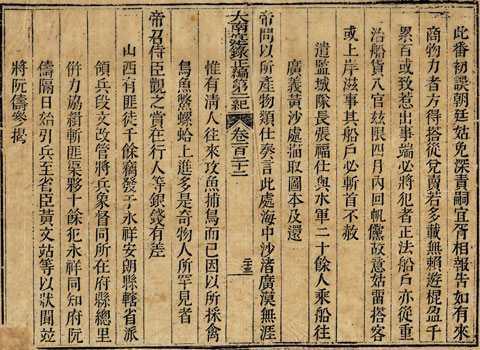 此番初誤朝廷姑免深責嗣宜胥相報告如有來
商物力者方得搭從兌賣若多載無賴遊棍盈千
累百或致惹出事端必將犯者正法船戶亦從重
治船貨入官玆限四月內回帆儻故意姑畱搭客
或上岸滋事其船戶必斬首不赦
遣監城隊長張福仕與水軍二十餘人乘船往
廣義黃沙處描取圖本及還
帝問以所產物類仕奏言此處海中沙渚廣漠無涯
大南寔錄正編第二紀 卷一百二十二 二十三
惟有清人往來攻魚捕鳥而已因以所採禽
鳥魚鱉螺蛤上進多是奇物人所罕見者
帝召侍臣觀之賞在行人等銀錢有差
山西有匪徒千餘竊發于永祥安朗縣轄省派
領兵段文改管將兵象會同所在府縣總里
併力協緝斬匪渠夥十餘犯永祥同知府阮
儔隔日始引兵至省臣黃文站等以狀聞並
將阮儔參揭